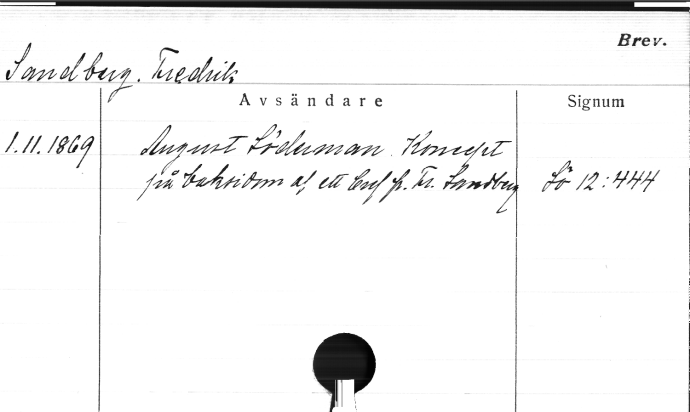 Brev.
Sandberg. Fredrik
Avsändare
Signum
1.11.1869
August Söderman. Koncept
på baksidan af ett bref fr. Fr. Sandberg
Sö 12:444